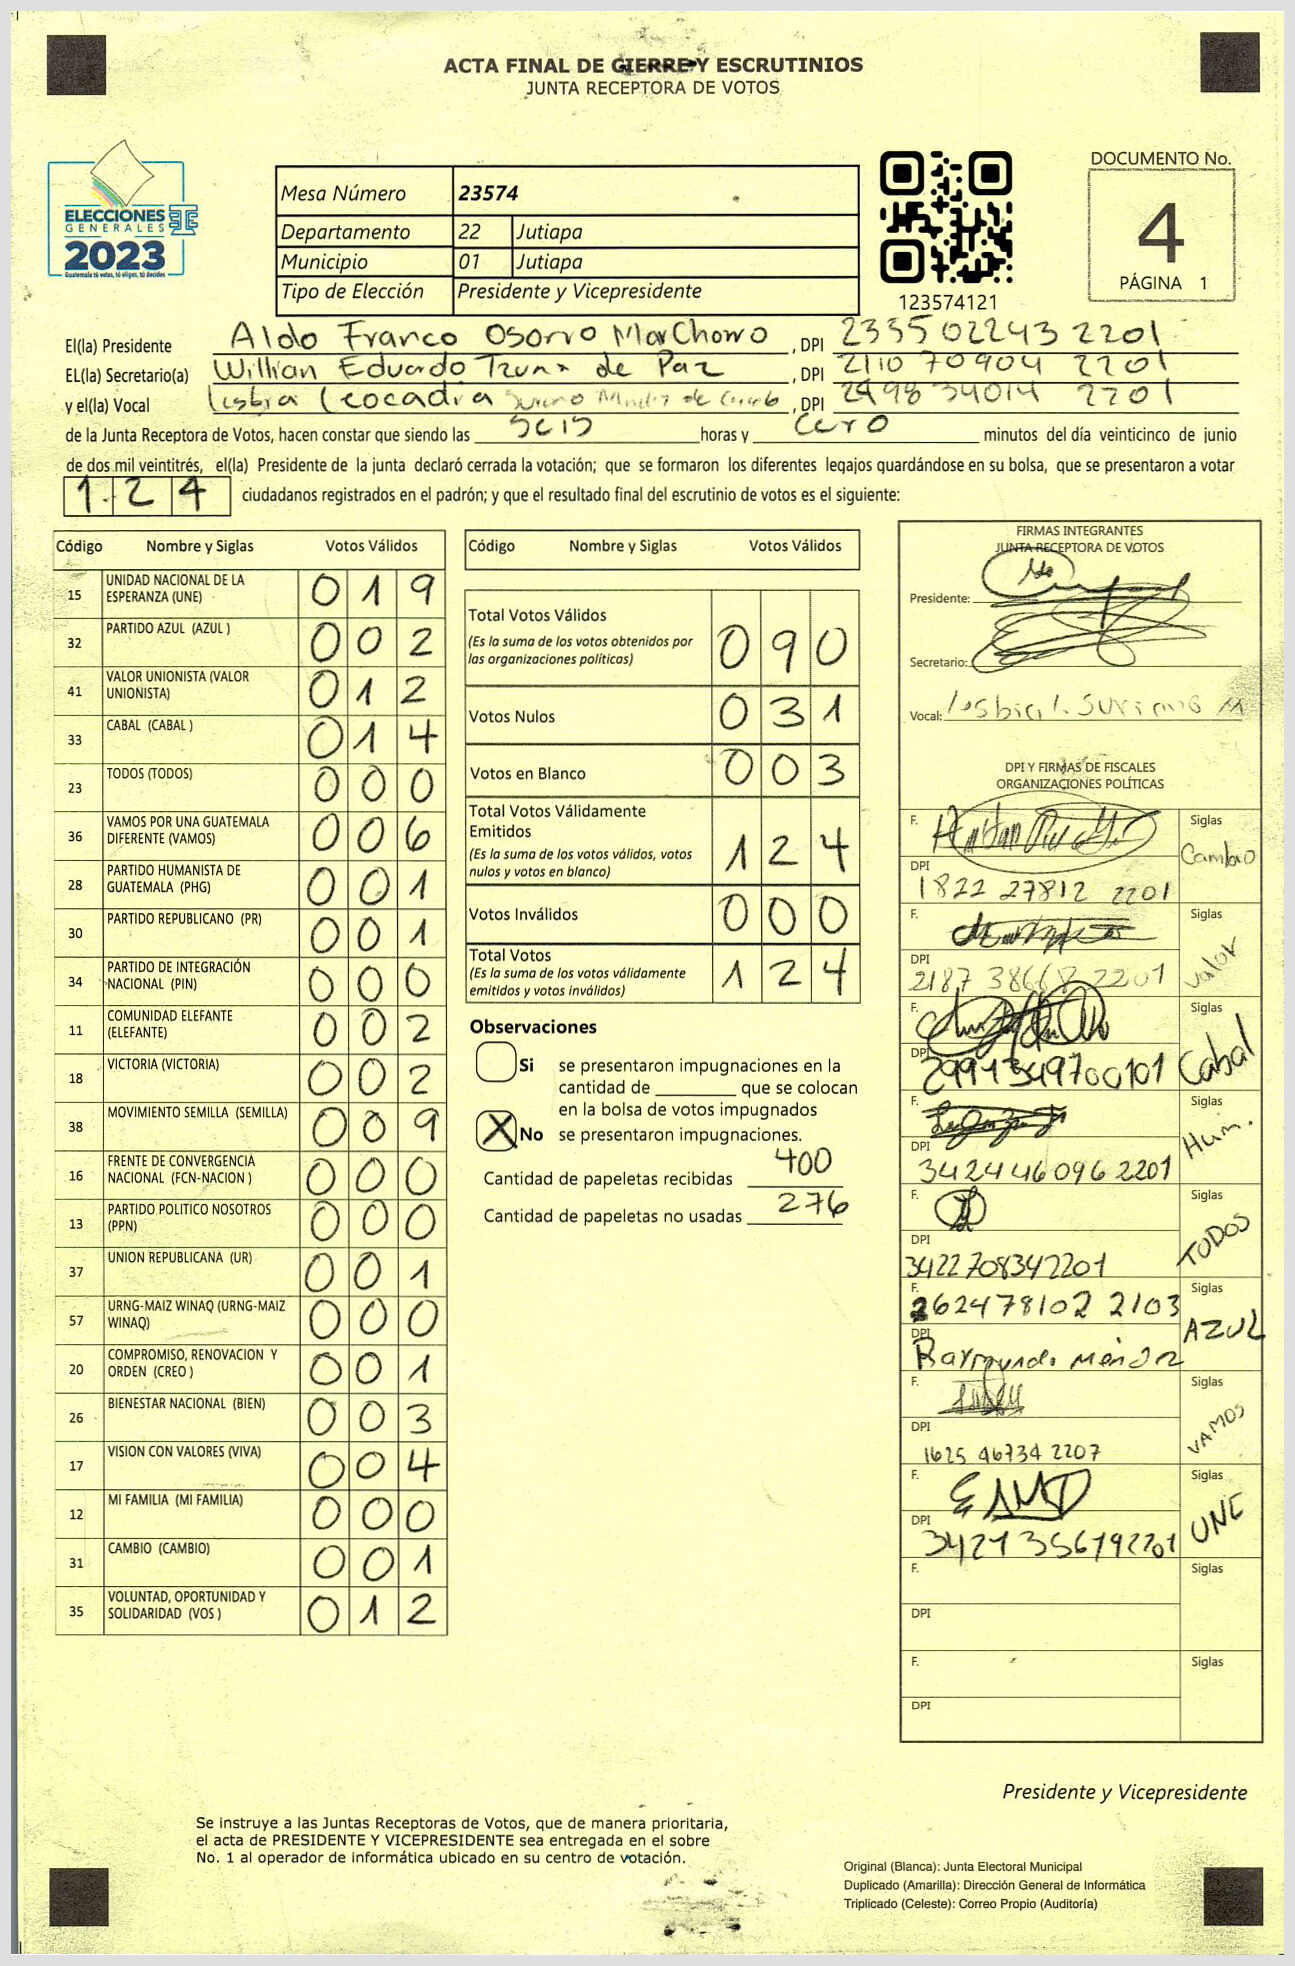 ACTA FINAL DE CIERRE Y ESCRUTINIOS
JUNTA RECEPTORA DE VOTOS
ELECCIONES
GENERALES
2023
Guatemala tú votas, tú eliges, tú decides
Mesa Número 23574
Departamento 22 Jutiapa
Municipio 01 Jutiapa
Tipo de Elección Presidente y Vicepresidente
123574121
DOCUMENTO No.
4
PÁGINA 1
El(la) Presidente Aldo Franco Osorio MarChorro , DPI 2335 02243 2201
EL(la) Secretario(a) Willian Eduardo de Paz , DPI 2110 70904 2201
y el(la) Vocal Lesbia Leocadia , DPI 2498 34014 2201
de la Junta Receptora de Votos, hacen constar que siendo las seis horas y cero minutos del día veinticinco de junio
de dos mil veintitrés, el(la) Presidente de la junta declaró cerrada la votación; que se formaron los diferentes legajos guardándose en su bolsa, que se presentaron a votar
124 ciudadanos registrados en el padrón; y que el resultado final del escrutinio de votos es el siguiente:
Código Nombre y Siglas Votos Válidos
15 UNIDAD NACIONAL DE LA ESPERANZA (UNE) 019
32 PARTIDO AZUL (AZUL ) 002
41 VALOR UNIONISTA (VALOR UNIONISTA) 012
33 CABAL (CABAL ) 014
23 TODOS (TODOS) 000
36 VAMOS POR UNA GUATEMALA DIFERENTE (VAMOS) 006
28 PARTIDO HUMANISTA DE GUATEMALA (PHG) 001
30 PARTIDO REPUBLICANO (PR) 001
34 PARTIDO DE INTEGRACIÓN NACIONAL (PIN) 000
11 COMUNIDAD ELEFANTE (ELEFANTE) 002
18 VICTORIA (VICTORIA) 002
38 MOVIMIENTO SEMILLA (SEMILLA) 009
16 FRENTE DE CONVERGENCIA NACIONAL (FCN-NACION ) 000
13 PARTIDO POLITICO NOSOTROS (PPN) 000
37 UNION REPUBLICANA (UR) 001
57 URNG-MAIZ WINAQ (URNG-MAIZ WINAQ) 000
20 COMPROMISO, RENOVACION Y ORDEN (CREO ) 001
26 BIENESTAR NACIONAL (BIEN) 003
17 VISION CON VALORES (VIVA) 004
12 MI FAMILIA (MI FAMILIA) 000
31 CAMBIO (CAMBIO) 001
35 VOLUNTAD, OPORTUNIDAD Y SOLIDARIDAD (VOS ) 012
Código Nombre y Siglas Votos Válidos
Total Votos Válidos 090
(Es la suma de los votos obtenidos por
las organizaciones políticas)
Votos Nulos 031
Votos en Blanco 003
Total Votos Válidamente
Emitidos 124
(Es la suma de los votos válidos, votos
nulos y votos en blanco)
Votos Inválidos 000
Total Votos 124
(Es la suma de los votos válidamente
emitidos y votos inválidos)
Observaciones
Si se presentaron impugnaciones en la
cantidad de ________ que se colocan
en la bolsa de votos impugnados
X No se presentaron impugnaciones.
Cantidad de papeletas recibidas 400
Cantidad de papeletas no usadas 276
FIRMAS INTEGRANTES
JUNTA RECEPTORA DE VOTOS
Presidente:
Secretario:
Vocal: Lesbia L. Suriano M
DPI Y FIRMAS DE FISCALES
ORGANIZACIONES POLÍTICAS
F. Siglas Cambio
DPI 1822 27812 2201
F. Siglas Valor
DPI 2187 38668 2201
F. Siglas Cabal
DPI 2991349700101
F. Siglas Hum.
DPI 3424460962201
F. Siglas TODOS
DPI 3422708342201
F. 262478102 2103 Siglas AZUL
DPI Raymundo Méndez
F. Siglas VAMOS
DPI 1625 46734 2207
F. Siglas UNE
DPI 3421356192201
F. Siglas
DPI
F. Siglas
DPI
Presidente y Vicepresidente
Se instruye a las Juntas Receptoras de Votos, que de manera prioritaria,
el acta de PRESIDENTE Y VICEPRESIDENTE sea entregada en el sobre
No. 1 al operador de informática ubicado en su centro de votación.
Original (Blanca): Junta Electoral Municipal
Duplicado (Amarilla): Dirección General de Informática
Triplicado (Celeste): Correo Propio (Auditoría)